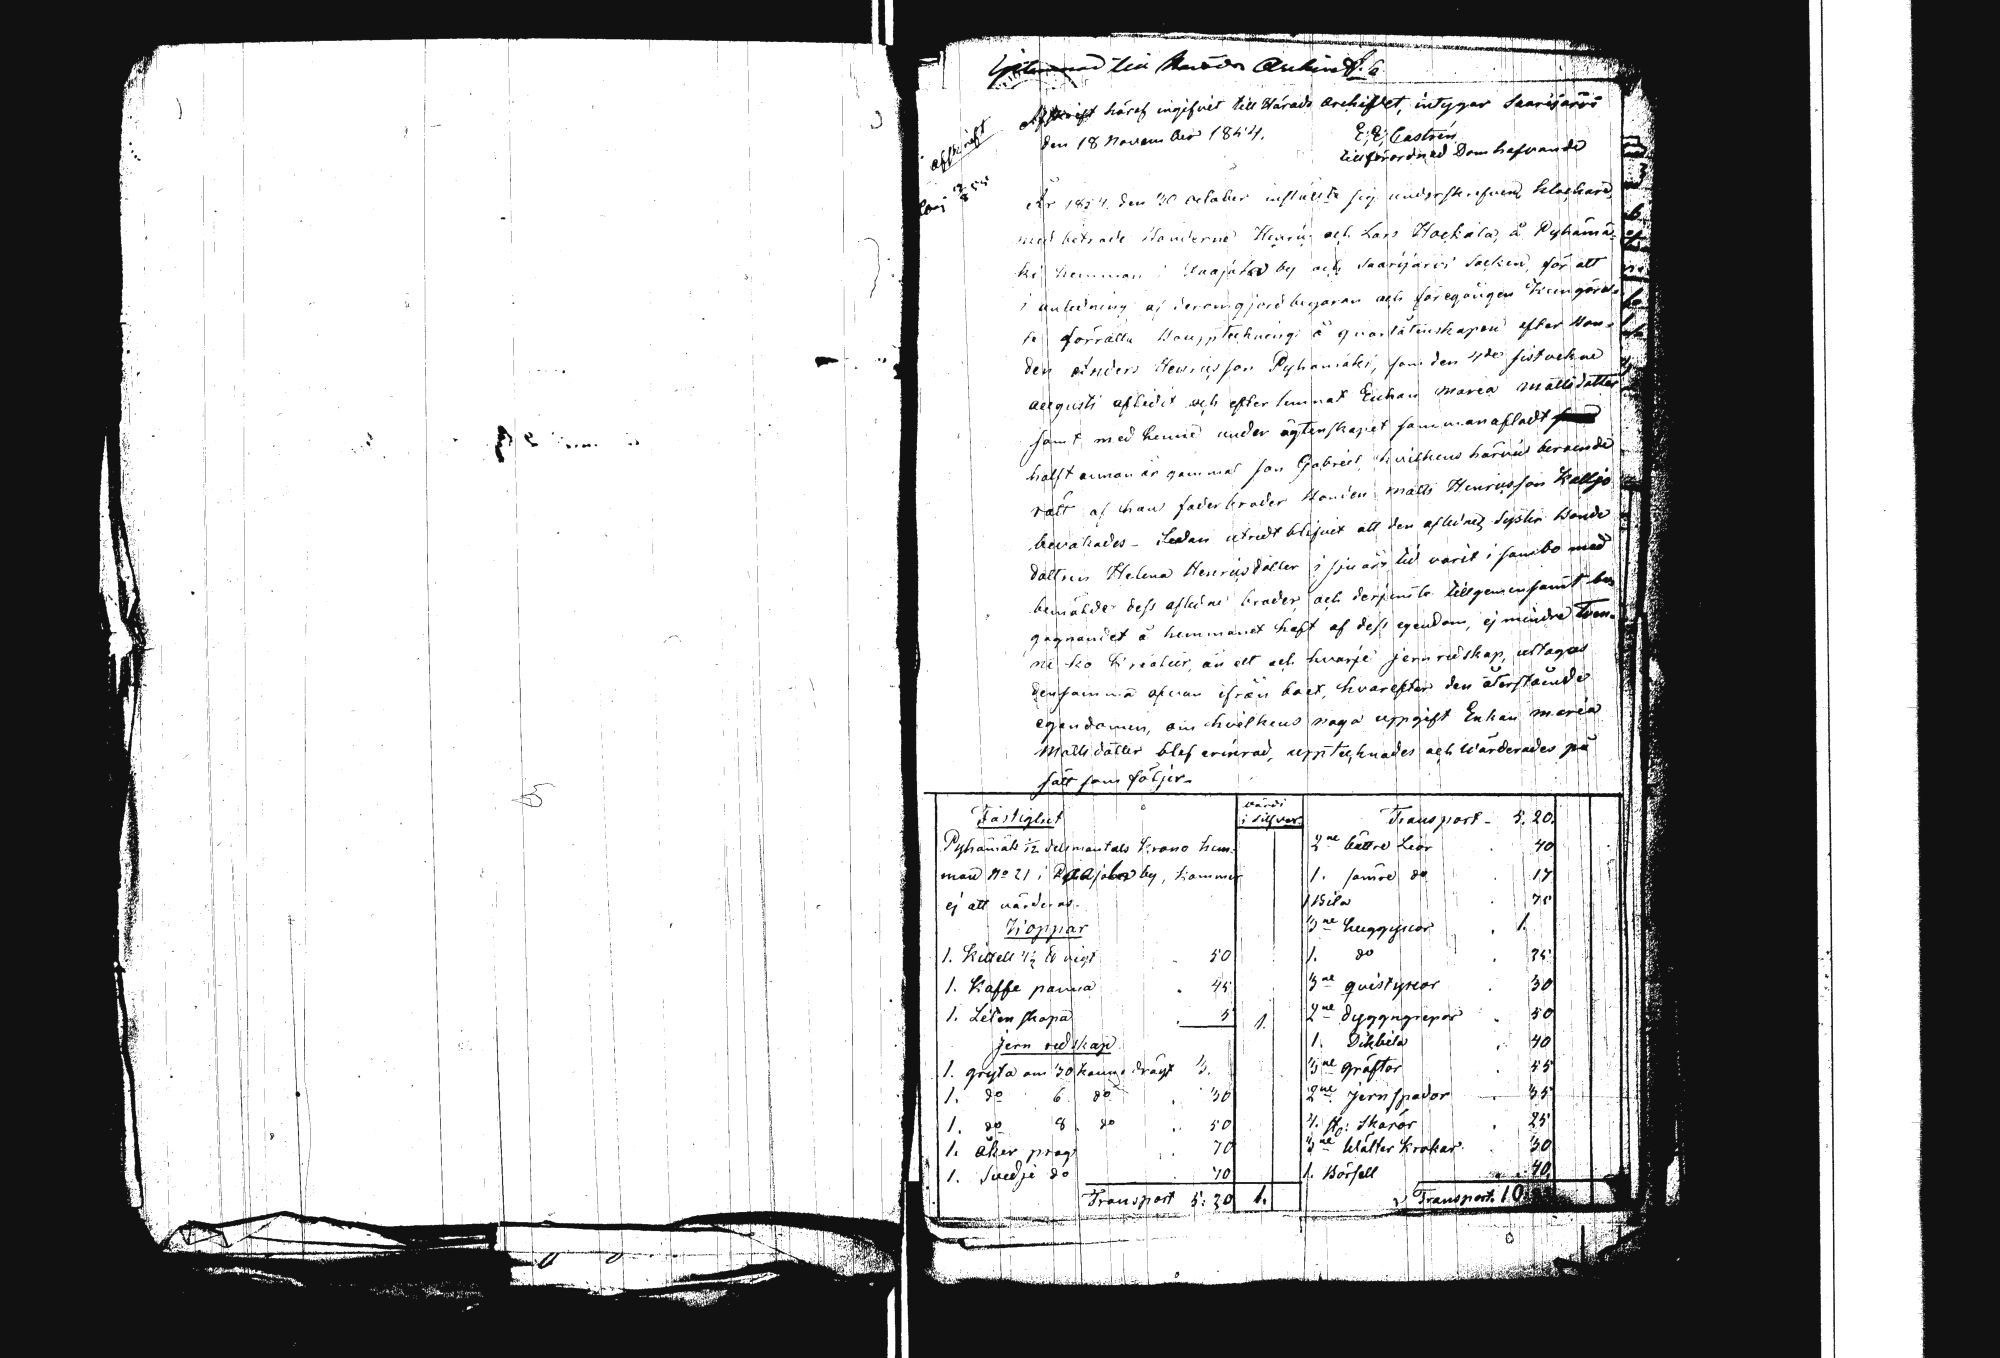 till Härads Archivet
Afskrift häraf ingifvit till Härads archifvet, intygar Saarijärvi
den 18 November 1854. E; E; Castrén
tillförordnad Domhafvande
afskrift
År 1854 den 30 October instälte sig underskrifven, Klockare,
med bönderne Henric och Lars Hoskala, å Pyhämä-
ki hemman i by och Saarijärvi Socken, för att
i anledning af derom gjord begäran och föregången Kungörel-
se förrätta Bouppteckning å qvarlåtenskapen efter Bon-
den Anders Henricsson Pyhämäki, som den 4de sistvekne
augusti aflidit och efterlemnat Enkan Maria Mattsdotter
samt med henne under ägtenskapet sammanaflade
halftannan år gammal son Gabriel, hvilkens härvid beroende
rätt af hans faderbroder Bonden Matts Henricsson Kalljo
bevakades. Sedan utredt blifvit att den aflidnes Syster Bonde
dottren Helena Henricsdotter i sju års tid varit i sambo med
bemälde dess aflidne broder, och derjemte till gemensamt be-
gagnandet å hemmanet haft af dess egendom, ej mindre Tven-
ne ko kreatur, än ett och hvarje jernredskap, uttogos
densamma afvan ifrån boet, hvarefter den återstående
egendomen, om hvilkens noga uppgift Enkan Maria
Mattsdotter blef erinrad, upptecknades och värderades på
sätt som följer.
Fastighet
värdi
i silfver
Pyhämäki 1/12 dels mantals Krono hem-
man No 21 i by, kommer
ej att värderas.
Koppar
1. Kittell vigt 50
1. Kaffe panna 45
1. Liten skopa 5 1.
Jern redskap
1. gryta om 30 kannors drägt 3.
1. do 6 do 30
1. do 8 do 50
1. åker plog 70
1. Svedje do 70
Transport 5: 20 1.
Transport 5. 20.
2ne bättre Liar 40
1. sämre do 17
1 Bila 75
3ne huggyxor 1.
1. do 25
3ne qvistyxor 30
2ne dyggngrepar 50
1. Dikbila 40
3ne gräftor 55
2ne jernspador 35
4. st: Skäror 25
3ne Wälter krokar 30
1. Börsell 40.
Transport. 10.